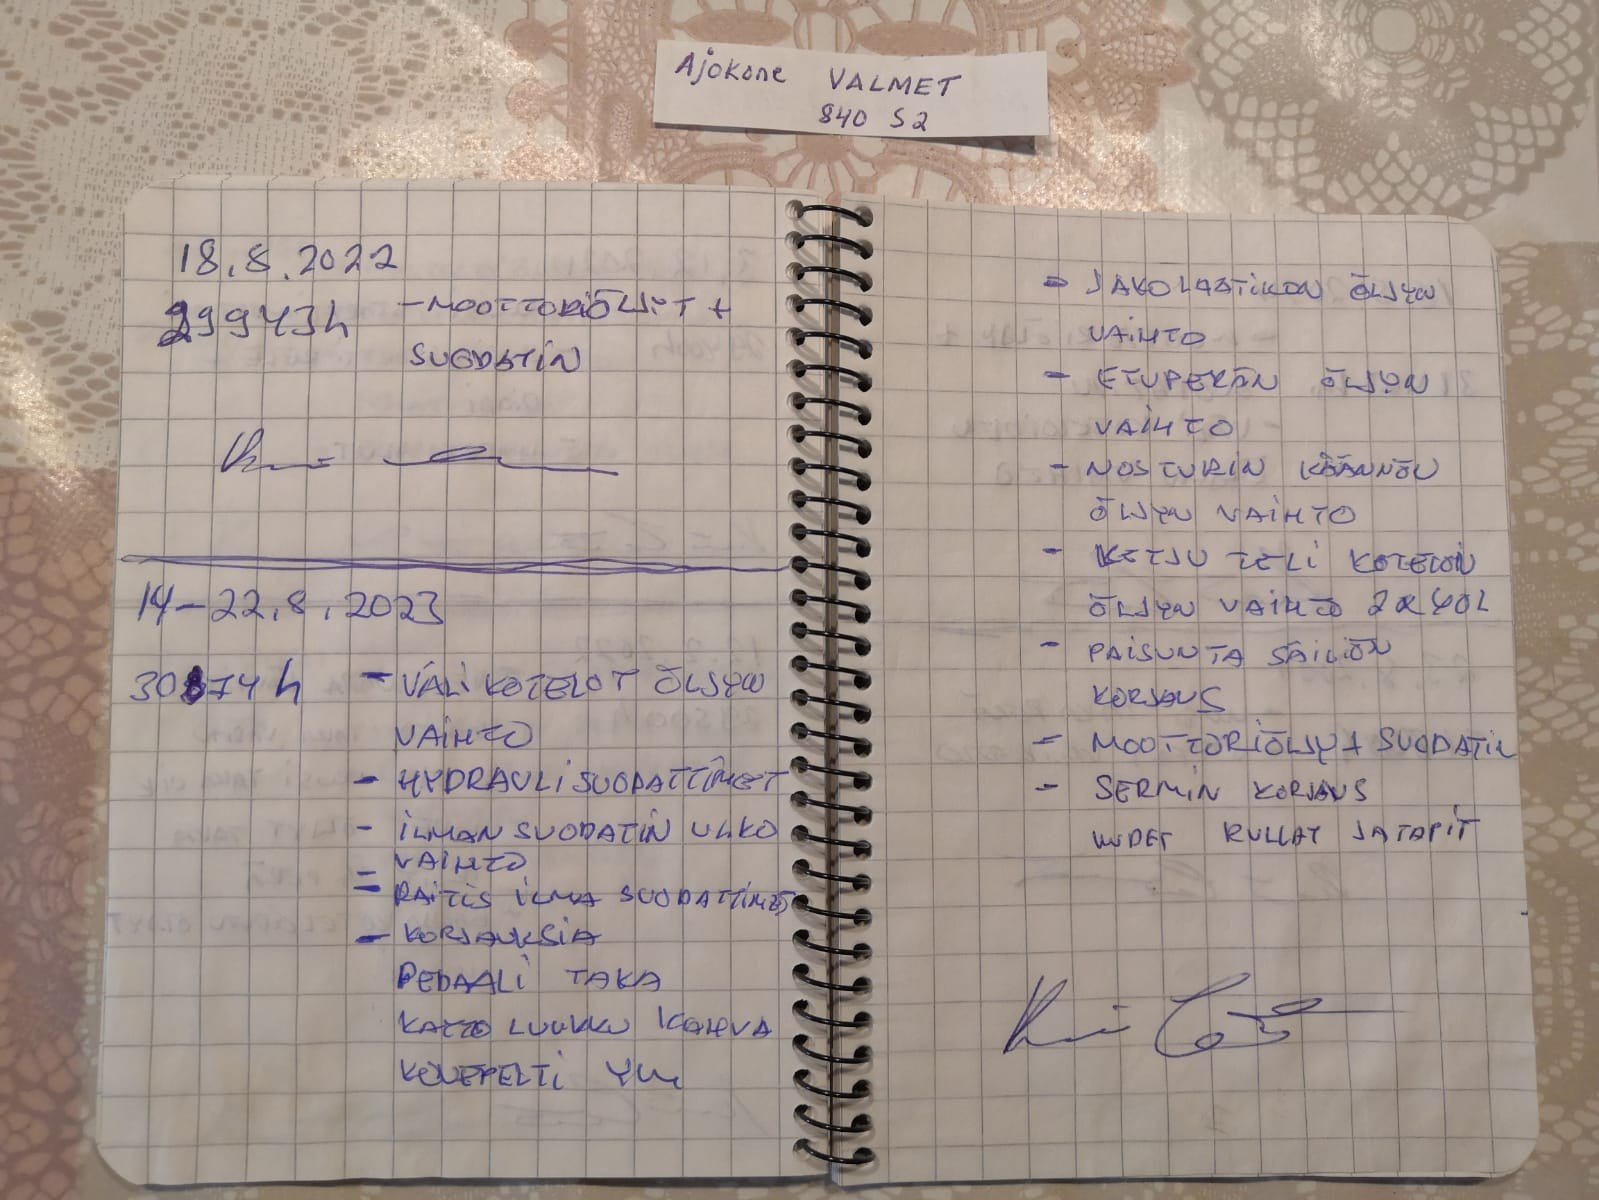 Ajokone VALMET
840 S2
18.8.2022
29943h - MOOTTORIÖLJYT +
SUODATIN
14-22.8.2023
30874h - VÄLIKOTELOT ÖLJYN
VAIHTO
- HYDRAULISUODATTIMET
- ILMANSUODATIN ULKO
VAIHTO
- RAITIS ILMA SUODATTIMET
- KORJAUKSIA
PEDAALI TAKA
KATTO LUUKKU KAHVA
KONEPELTI YM
- JAKOLAATIKON ÖLJYN
VAIHTO
- ETUPERÄN ÖLJYN
VAIHTO
- NOSTURIN KÄÄNNÖN
ÖLJYN VAIHTO
- KETJU TELI KOTELON
ÖLJYN VAIHTO 2x40L
- PAISUNTA SÄILIÖN
KORJAUS
- MOOTTORIÖLJY + SUODATIN
- SERMIN KORJAUS
UUDET RULLAT JA TAPIT